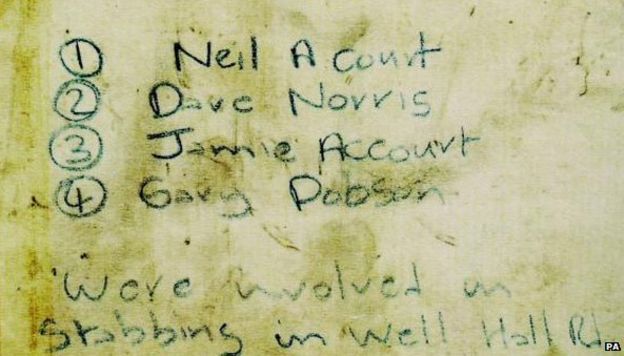 ① Neil A court
② Dave Norris
③ Jamie Accourt
④ Gary Dobson
Were involved in
Stabbing in Well Hall Rd
PA